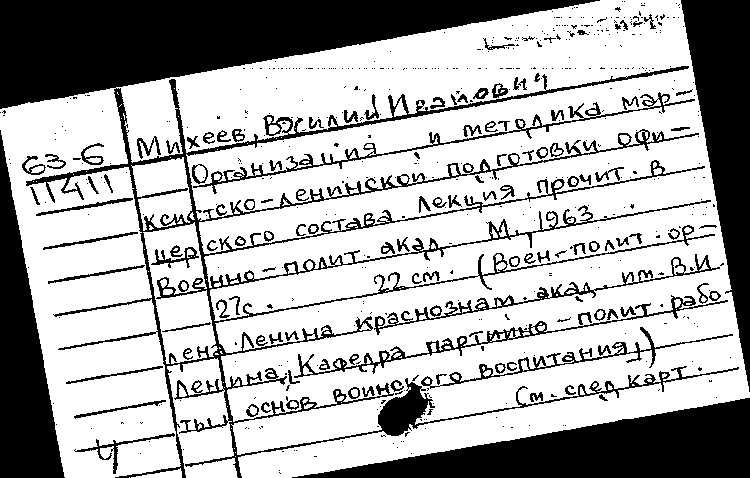 Михеев, Василий Иванович
63-6
11411
Организация и методика мар-
ксистско-ленинской подготовки офи-
церского состава. Лекция, прочит. в
Военно-полит. акад. М., 1963.
27с. 22 см. (Воен-полит. ор-
дена Ленина краснознам. акад. им. В.И.
Ленина, Кафедра партийно-полит. рабо-
ты и основ воинского воспитания,)
См. след карт.
4